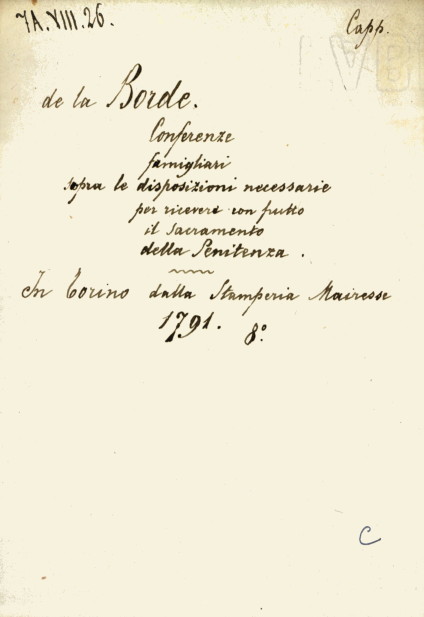 7A.VIII.26.
Capp.
de la Borde.
Conferenze
famigliari
sopra le disposizioni necessarie
per ricevere con frutto
il Sacramento
della Penitenza.
In Torino dalla Stamperia Mairesse
1791. 8º.
C